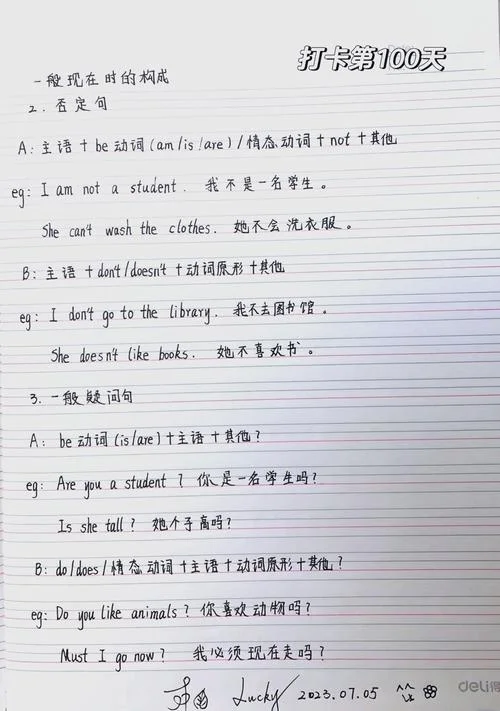 打卡第100天
一般现在时的构成
2. 否定句
A: 主语 + be 动词 (am/is/are) / 情态动词 + not + 其他
eg: I am not a student. 我不是一名学生。
She can't wash the clothes. 她不会洗衣服。
B: 主语 + don't/doesn't + 动词原形 + 其他
eg: I don't go to the library. 我不去图书馆。
She doesn't like books. 她不喜欢书。
3. 一般疑问句
A: be 动词 (is/are) + 主语 + 其他?
eg: Are you a student? 你是一名学生吗?
Is she tall? 她个子高吗?
B: do/does/情态动词 + 主语 + 动词原形 + 其他?
eg: Do you like animals? 你喜欢动物吗?
Must I go now? 我必须现在走吗?
Lucky 2023.07.05
deli得